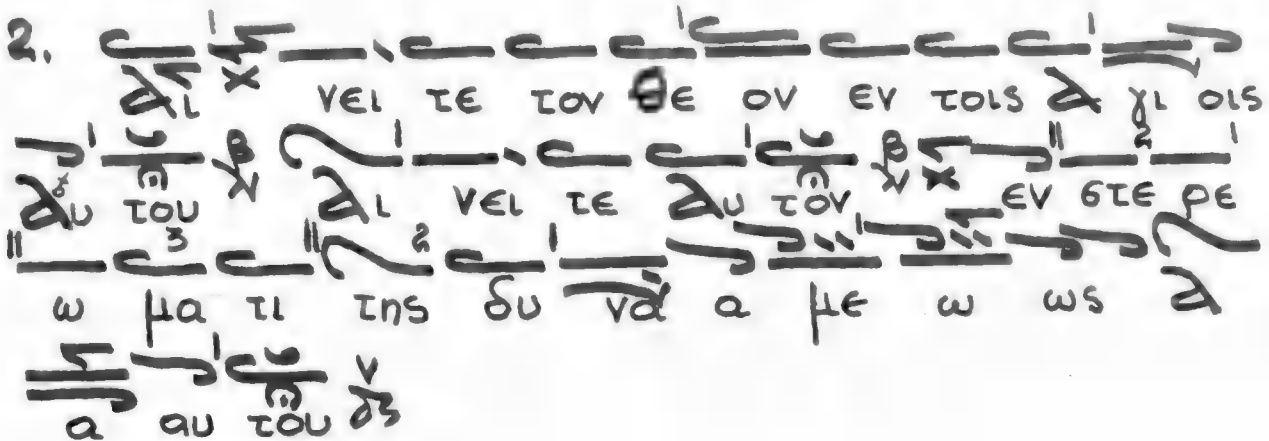 2. αι νει τε τον θε ον εν τοις α γι οις
αυ του αι νει τε αυ τον εν στε ρε
ω μα τι της δυ να α με ω ως α
α αυ του